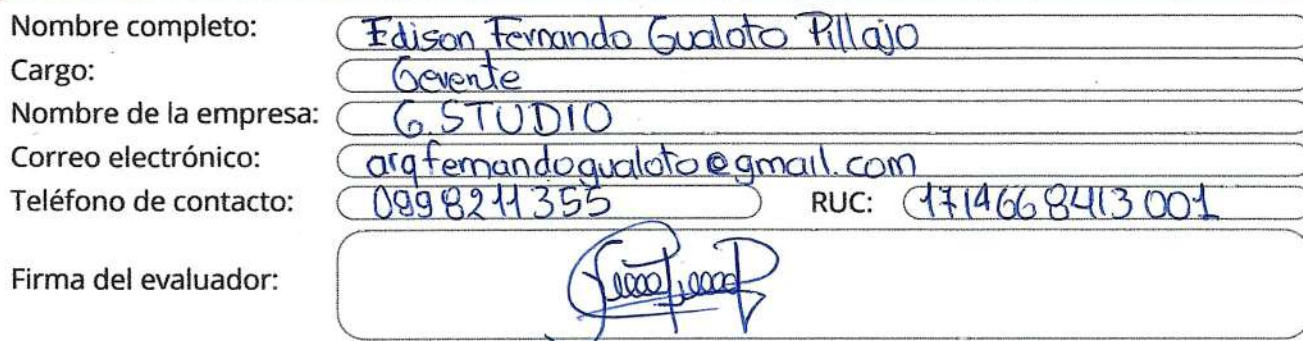 Nombre completo: Edison Fernando Gualoto Pillajo
Cargo: Gerente
Nombre de la empresa: G.STUDIO
Correo electrónico: arqfernandogualoto@gmail.com
Teléfono de contacto: 0998211355 RUC: 1714668413001
Firma del evaluador: